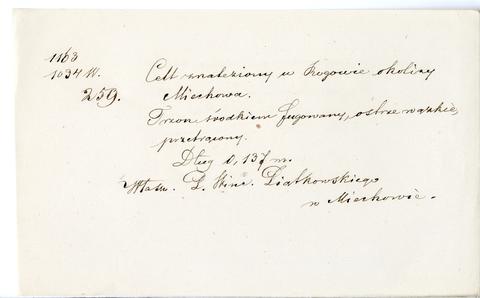 1163
1034 W.
259.
Celt znaleziony w Rogowie okolicy
Miechowa.
Trzon środkiem fugowany, ostrze wązkie,
przetrącony.
Dług 0,137 m.
Własn. P. Winc. Piątkowskiego
w Miechowie.